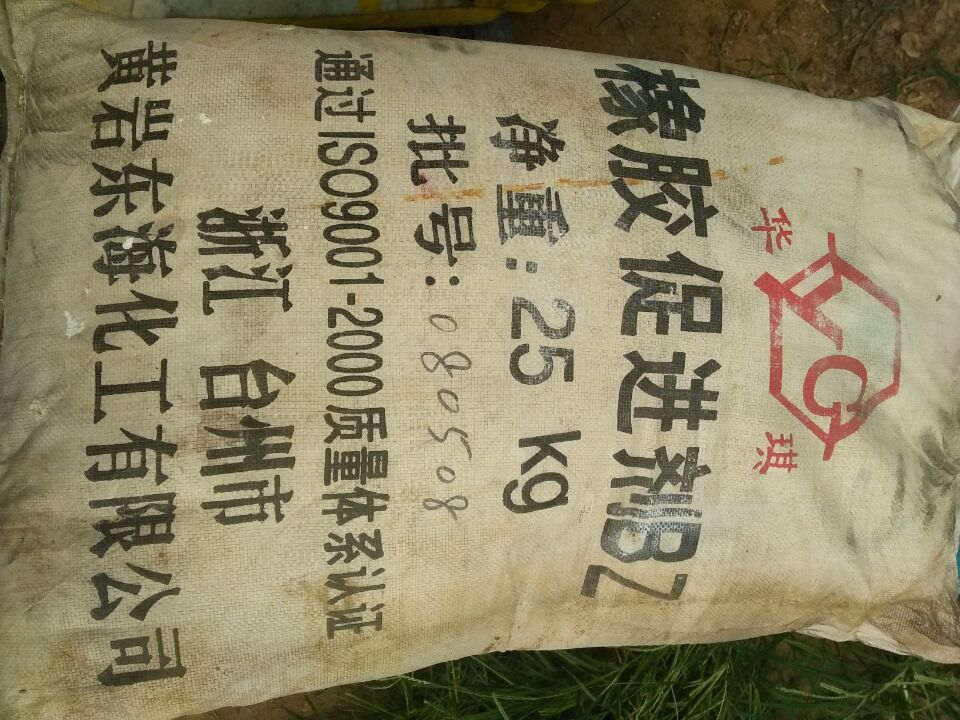 华 琪
橡胶促进剂BZ
净重:25 kg
批号:0805508
通过ISO9001-2000质量体系认证
浙江 台州市
黄岩东海化工有限公司